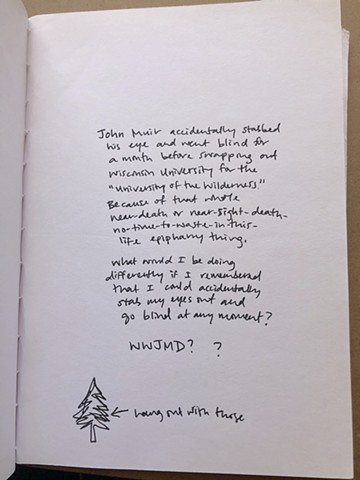 John Muir accidentally stabbed
his eye and went blind for
a month before swapping out
Wisconsin University for the
"University of the Wilderness."
Because of that whole
near-death or near-sight-death-
no-time-to-waste-in-this-
life epiphany thing.
What would I be doing
differently if I remembered
that I could accidentally
stab my eyes out and
go blind at any moment?
WWJMD? ?
← hang out with those